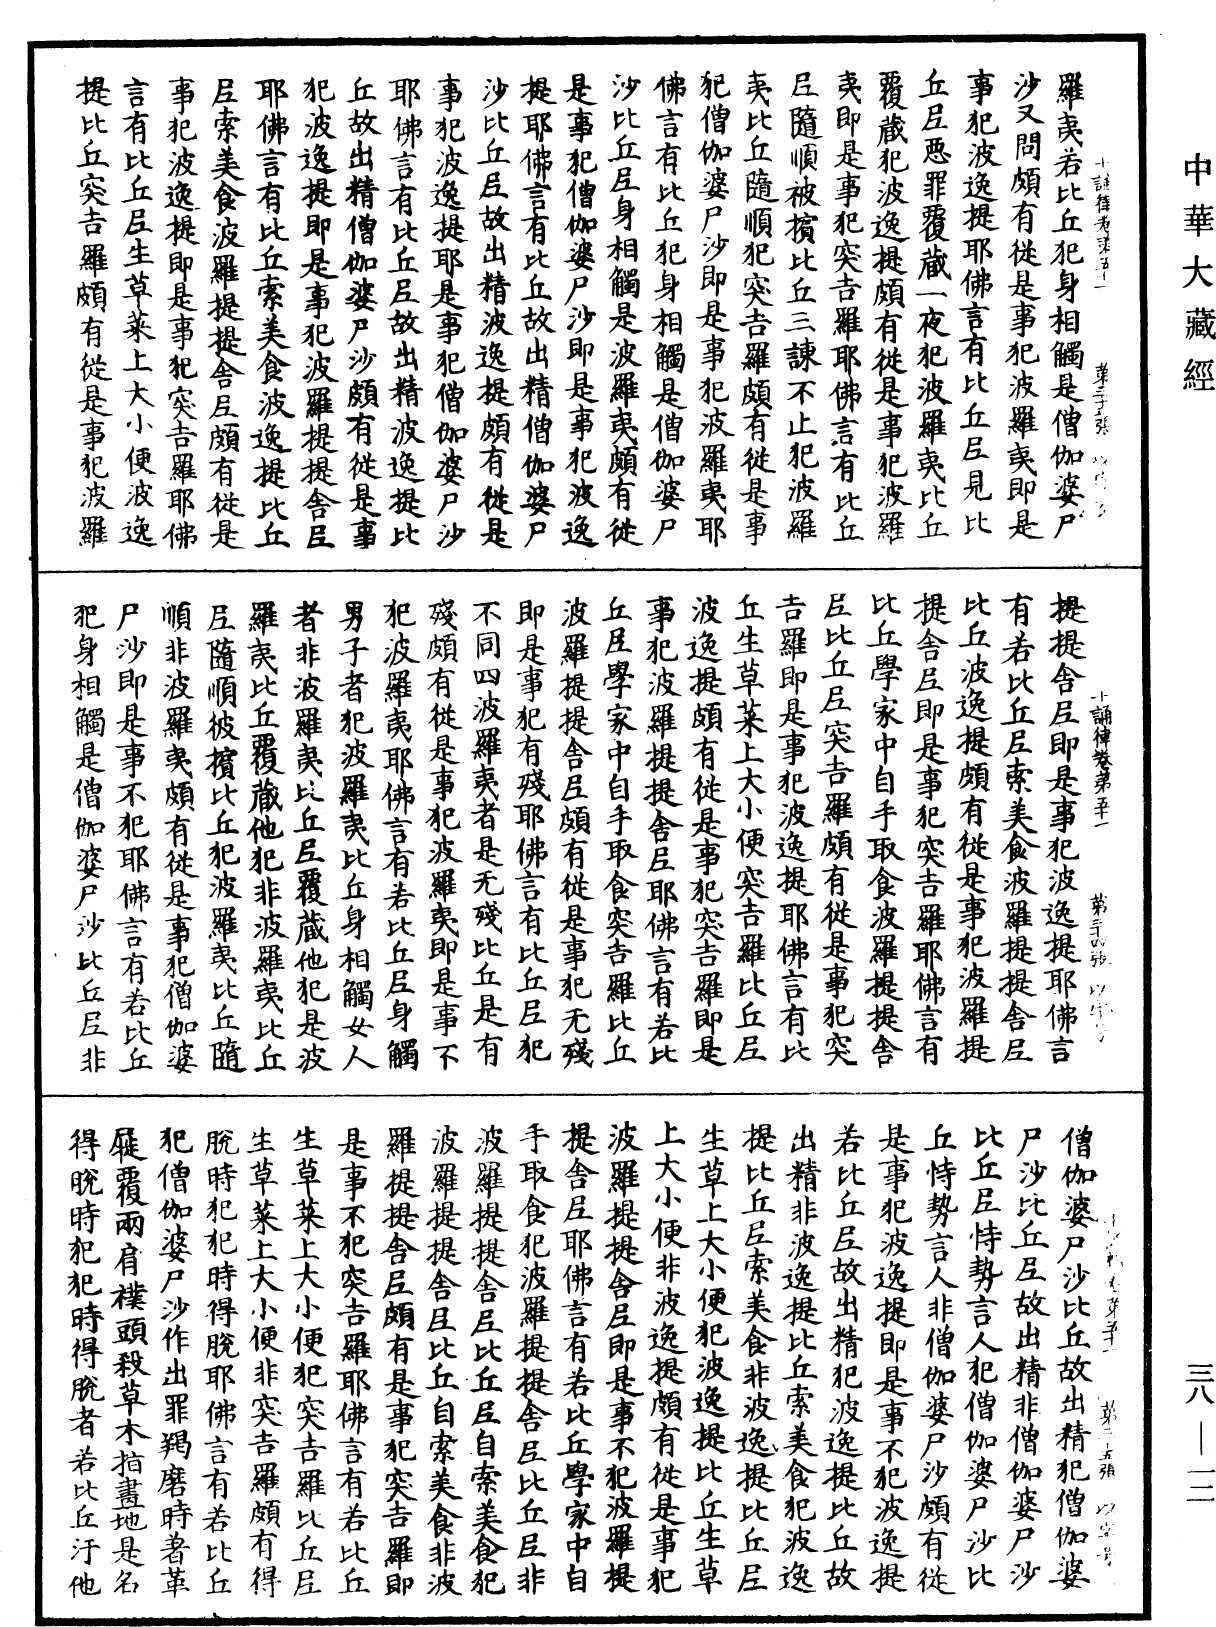 中華大藏經
羅夷若比丘犯身相觸是僧伽婆尸
沙又問頗有從是事犯波羅夷即是
事犯波逸提耶佛言有比丘尼見比
丘尼惡罪覆藏一夜犯波羅夷比丘
覆藏犯波逸提頗有從是事犯波羅
夷即是事犯突吉羅耶佛言有比丘
尼隨順被擯比丘三諫不止犯波羅
夷比丘隨順犯突吉羅頗有從是事
犯僧伽婆尸沙即是事犯波羅夷耶
佛言有比丘犯身相觸是僧伽婆尸
沙比丘尼身相觸是波羅夷頗有從
是事犯僧伽婆尸沙即是事犯波逸
提耶佛言有比丘故出精僧伽婆尸
沙比丘尼故出精波逸提頗有從是
事犯波逸提耶是事犯僧伽婆尸沙
耶佛言有比丘尼故出精波逸提比
丘故出精僧伽婆尸沙頗有從是事
犯波逸提即是事犯波羅提提舍尼
耶佛言有比丘索美食波逸提比丘
尼索美食波羅提提舍尼頗有從是
事犯波逸提即是事犯突吉羅耶佛
言有比丘尼生草菜上大小便波逸
提比丘突吉羅頗有從是事犯波羅
十誦律卷第五十一
提提舍尼即是事犯波逸提耶佛言
有若比丘尼索美食波羅提提舍尼
比丘波逸提頗有從是事犯波羅提
提舍尼即是事犯突吉羅耶佛言有
比丘學家中自手取食波羅提提舍
尼比丘尼突吉羅頗有從是事犯突
吉羅即是事犯波逸提耶佛言有比
丘生草菜上大小便突吉羅比丘尼
波逸提頗有從是事犯突吉羅即是
事犯波羅提提舍尼耶佛言有若比
丘尼學家中自手取食突吉羅比丘
波羅提提舍尼頗有從是事犯无殘
即是事犯有殘耶佛言有比丘尼犯
不同四波羅夷者是无殘比丘是有
殘頗有從是事犯波羅夷即是事不
犯波羅夷耶佛言有若比丘尼身觸
男子者犯波羅夷比丘身相觸女人
者非波羅夷比丘尼覆藏他犯是波
羅夷比丘覆藏他犯非波羅夷比丘
尼隨順彼擯比丘犯波羅夷比丘隨
順非波羅夷頗有從是事犯僧伽婆
尸沙即是事不犯耶佛言有若比丘
犯身相觸是僧伽婆尸沙比丘尼非
僧伽婆尸沙比丘故出精犯僧伽婆
尸沙比丘尼故出精非僧伽婆尸沙
比丘尼恃勢言人犯僧伽婆尸沙比
丘恃勢言人非僧伽婆尸沙頗有從
是事犯波逸提即是事不犯波逸提
若比丘尼故出精犯波逸提比丘故
出精非波逸提比丘索美食犯波逸
提比丘尼索美食非波逸提比丘尼
生草上大小便犯波逸提比丘生草
上大小便非波逸提頗有從是事犯
波羅提提舍尼即是事不犯波羅提
提舍尼耶佛言有若比丘學家中自
手取食犯波羅提提舍尼比丘尼非
波羅提提舍尼比丘尼自索美食犯
波羅提提舍尼比丘自索美食非波
羅提提舍尼頗有是事犯突吉羅即
是事不犯突吉羅耶佛言有若比丘
生草菜上大小便犯突吉羅比丘尼
生草菜上大小便非突吉羅頗有得
脫時犯犯時得脫耶佛言有若比丘
犯僧伽婆尸沙作出罪羯磨時著革
屣覆兩肩襆頭殺草木指畫地是名
得脫時犯犯時得脫者若比丘汙他
三八—一二